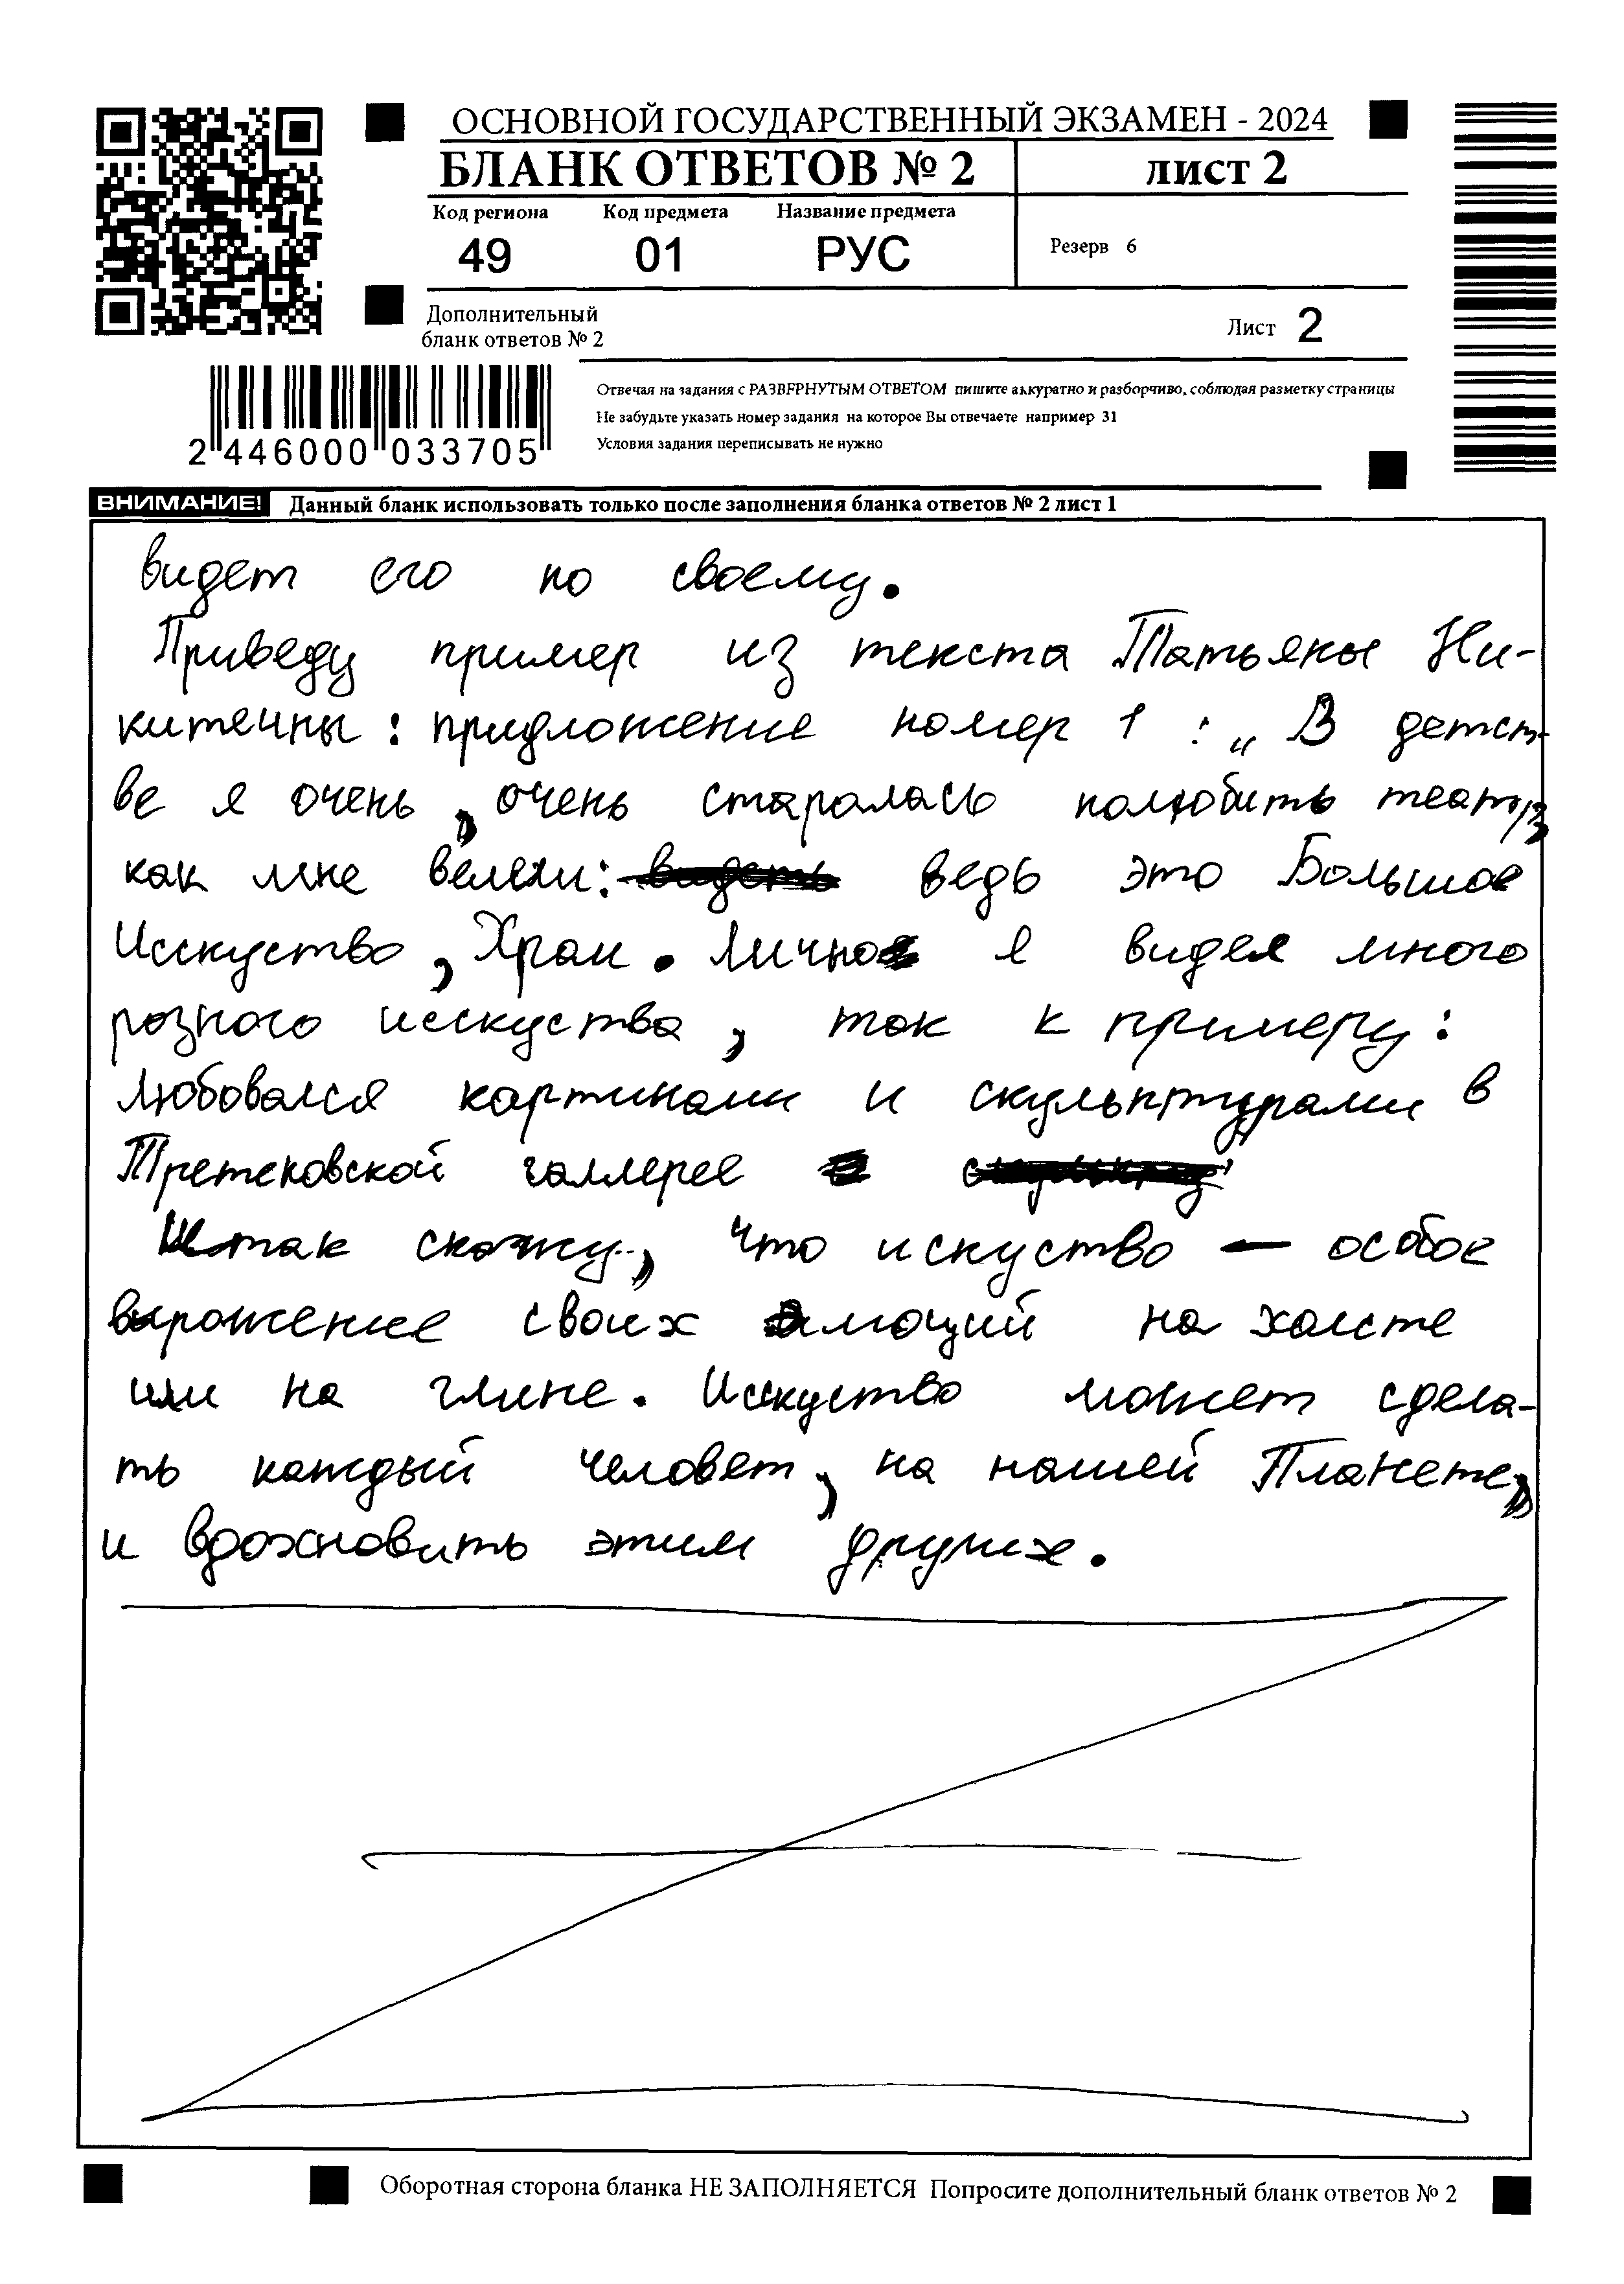 ОСНОВНОЙ ГОСУДАРСТВЕННЫЙ ЭКЗАМЕН - 2024
БЛАНК ОТВЕТОВ № 2
лист 2
Код региона Код предмета Название предмета
49 01 РУС
Резерв 6
Дополнительный
бланк ответов № 2
Лист 2
Отвечая на задания с РАЗВЕРНУТЫМ ОТВЕТОМ пишите аккуратно и разборчиво, соблюдая разметку страницы
Не забудьте указать номер задания на которое Вы отвечаете например 31
Условия задания переписывать не нужно
2 446000 033705
ВНИМАНИЕ! Данный бланк использовать только после заполнения бланка ответов № 2 лист 1
видет его по своему.
Приведу пример из текста Татьяны Ни-
китечны: придложение номер 1 : „ В детст-
ве я очень, очень старалась полюбить театр,
как мне велели: ведь это Большое
Исскуство, Храм. Лично я видел много
разного исскуства, так к примеру:
любовался картинами и скульптурами в
Третековской галлерее
Итак скажу, что искуство — особое
выражение своих эмоций на холсте
или на глине. Исскуство может сдела-
ть каждый человет, на нашей Планете,
и вдохновить этим других.
Оборотная сторона бланка НЕ ЗАПОЛНЯЕТСЯ Попросите дополнительный бланк ответов № 2